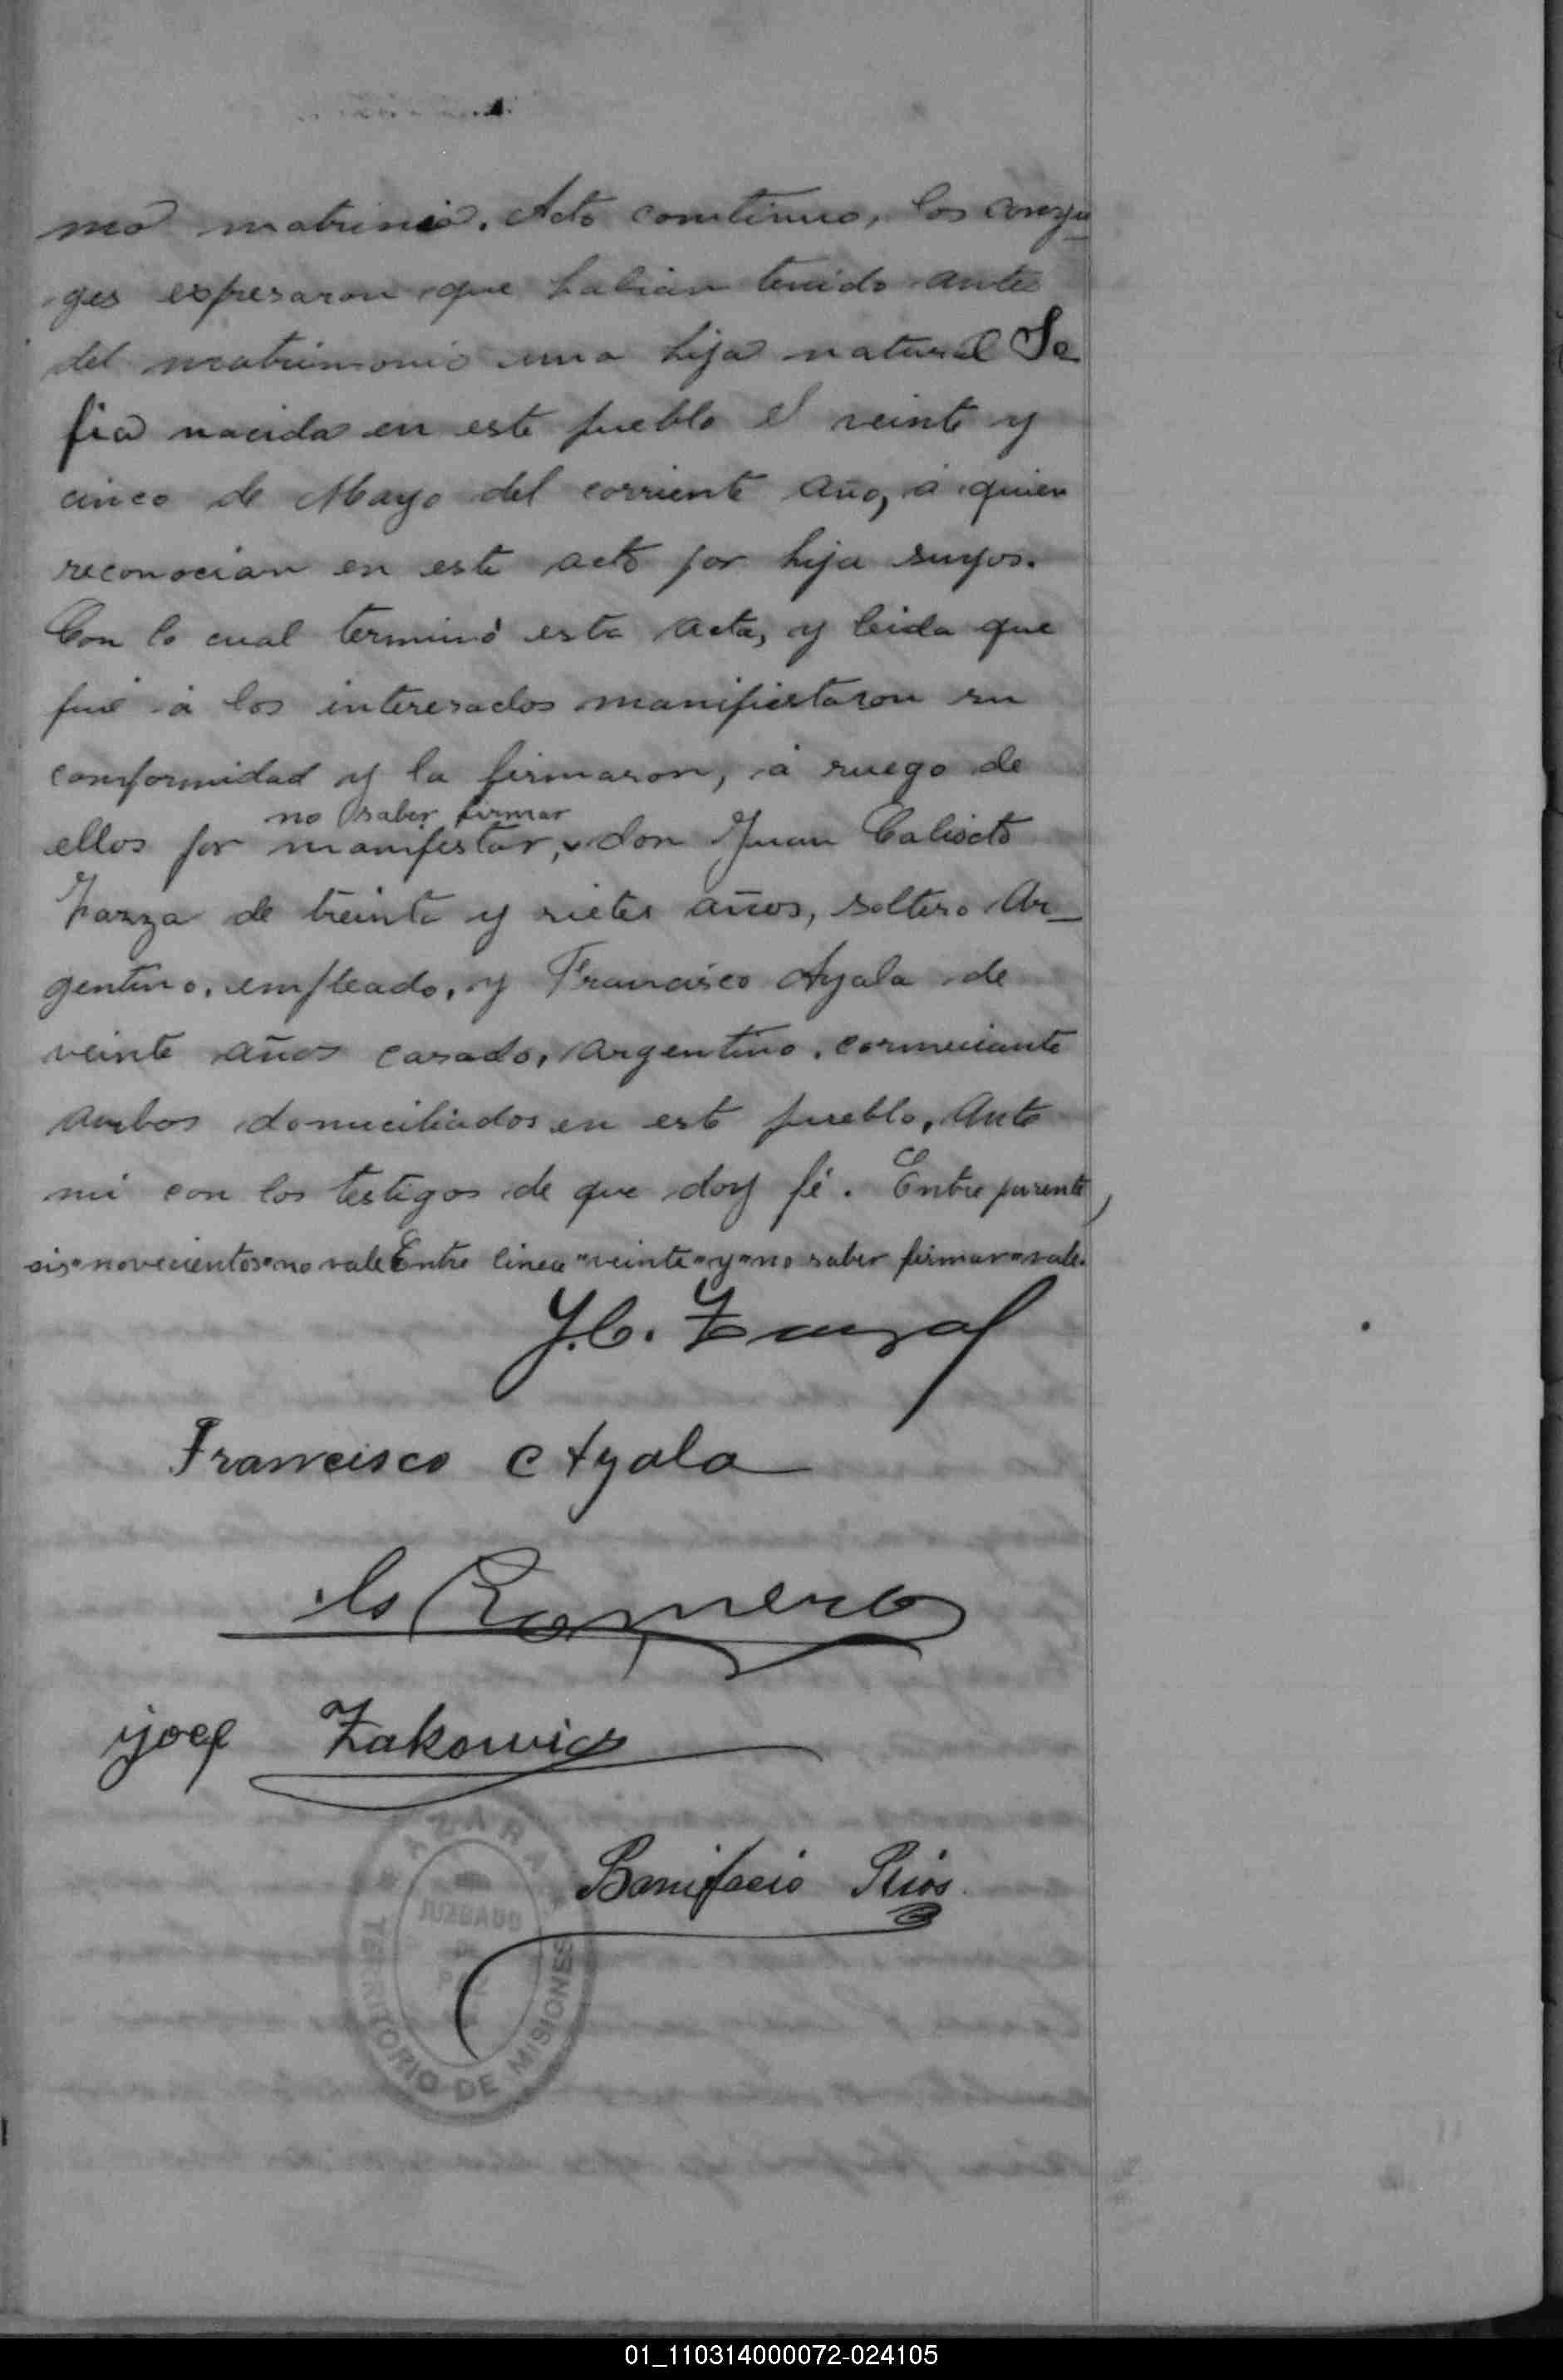 mo matrinio. Acto contínuo, los conyu-
ges expresaron que habian tenido antes
del matrimonio una hija natural So
fia nacida en este pueblo el veinte y
cinco de Mayo del corriente año, á quien
reconocian en este acto por hija suyos.
Con lo cual terminó esta acta, y leida que
fué á los interesados manifistaron su
conformidad y la firmaron, á ruego de
no saber firmar
ellos por manifestar, don Juan Calisto
Zarza de treinta y siete años, soltero Ar-
gentino, empleado, y Francisco Ayala de
veinte años casado, Argentino, comerciante
ambos domiciliados en este pueblo, Ante
mi con los testigos de que doy fé. Entre parente
sis "novecientos" no vale Entre linea "veinte" y "no saber firmar" vale.
J. C. Zarza
Francisco Ayala
Romero
Zakowicz
Bonifacio Rios
AZARA
JUZGADO
DE
PAZ
TERRITORIO DE MISIONES
01_110314000072-024105